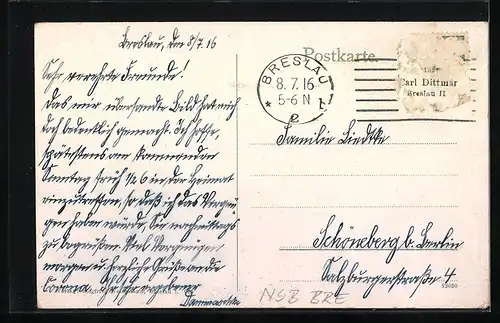 Breslau, den 8/7. 16
Sehr verehrte Freunde!
Das mir übersandte Bild hat mich
doch bedenklich gemacht. Ich hoffe,
spätestens am kommenden
Sonntag früh 1/2 6 in der Heimat
einzutreffen, so daß ich das Vergnü-
gen haben würde, Sie nachmittags
zu begrüßen. Viel Vergnügen
morgen und herzliche Grüße an die
Corona. Ihr sehr ergebener
Postkarte
BRESLAU
8.7.16
5-6 N
* 1
e
Carl Dittmar
Breslau II
Familie Liedtke
Schöneberg b. Berlin
Salzburgerstraße 4
NSB BRE